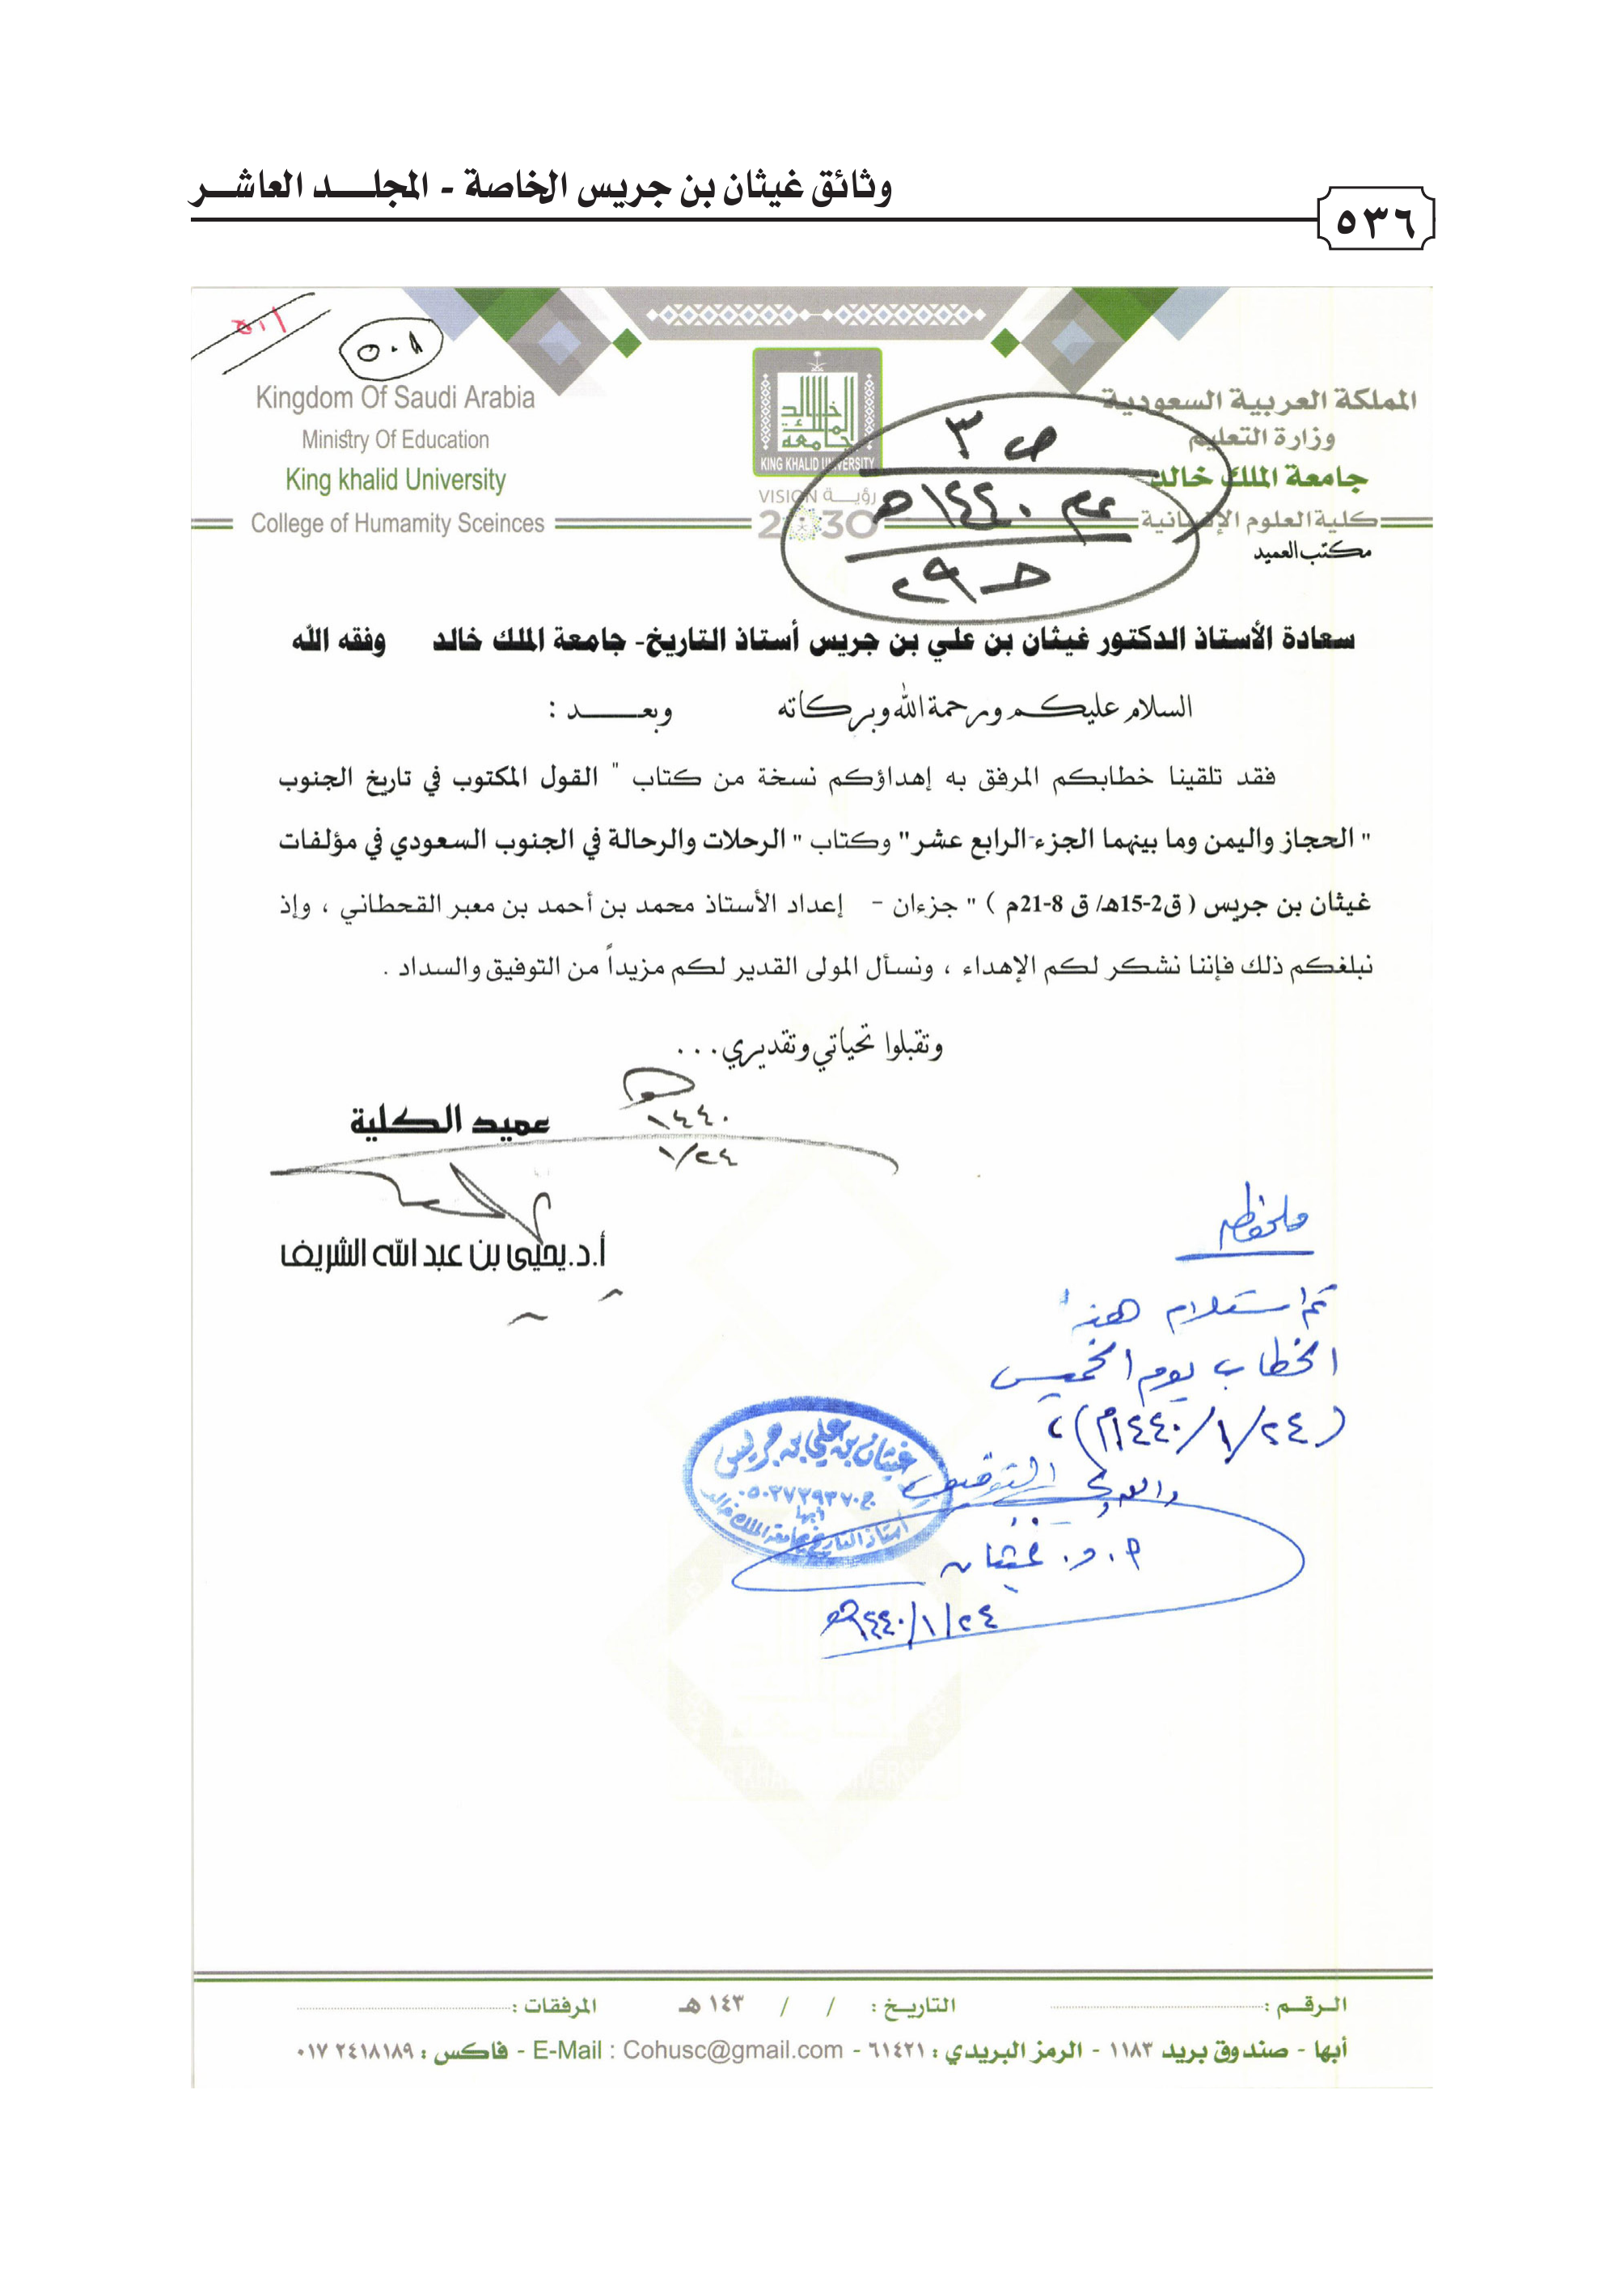 وثائق غيثان بن جريس الخاصة - المجلــد العاشــر
٥٣٦
٥٠٨
Kingdom Of Saudi Arabia
Ministry Of Education
King khalid University
College of Humamity Sceinces
جامعة الملك خالد
KING KHALID UNIVERSITY
VISION رؤيــة
2030
المملكة العربية السعودية
وزارة التعليم
جامعة الملك خالد
كلية العلوم الإنسانية
مكتب العميد
ص ٣
١٤٤٠هـ
سعادة الأستاذ الدكتور غيثان بن علي بن جريس أستاذ التاريخ- جامعة الملك خالد وفقه الله
السلام عليكم ورحمة الله وبركاته وبعــــد :
فقد تلقينا خطابكم المرفق به إهداؤكم نسخة من كتاب " القول المكتوب في تاريخ الجنوب
" الحجاز واليمن وما بينهما الجزء-الرابع عشر" وكتاب " الرحلات والرحالة في الجنوب السعودي في مؤلفات
غيثان بن جريس ( ق2-15هـ/ ق 8-21م ) " جزءان - إعداد الأستاذ محمد بن أحمد بن معبر القحطاني ، وإذ
نبلغكم ذلك فإننا نشكر لكم الإهداء ، ونسأل المولى القدير لكم مزيداً من التوفيق والسداد .
وتقبلوا تحياتي وتقديري...
عميد الكلية
١٤٤٠
١/٢٤
أ.د.يحيى بن عبد الله الشريف
ملحوظة
تم استلام هذا
الخطاب يوم الخميس
(١٤٤٠/١/٢٤هـ)،
والله ولي التوفيق
أ. د. غيثان
١٤٤٠/١/٢٤هـ
غيثان بن علي بن جريس
ج. ٠٥٠٢٧٢٩٣٧٠
أبها
أستاذ التاريخ بجامعة الملك خالد
الـرقـم : التاريـخ : / / ١٤٣ هـ المرفقات :
أبها - صندوق بريد ١١٨٣ - الرمز البريدي : ٦١٤٢١ - E-Mail : Cohusc@gmail.com - فاكس : ٠١٧ ٢٤١٨١٨٩